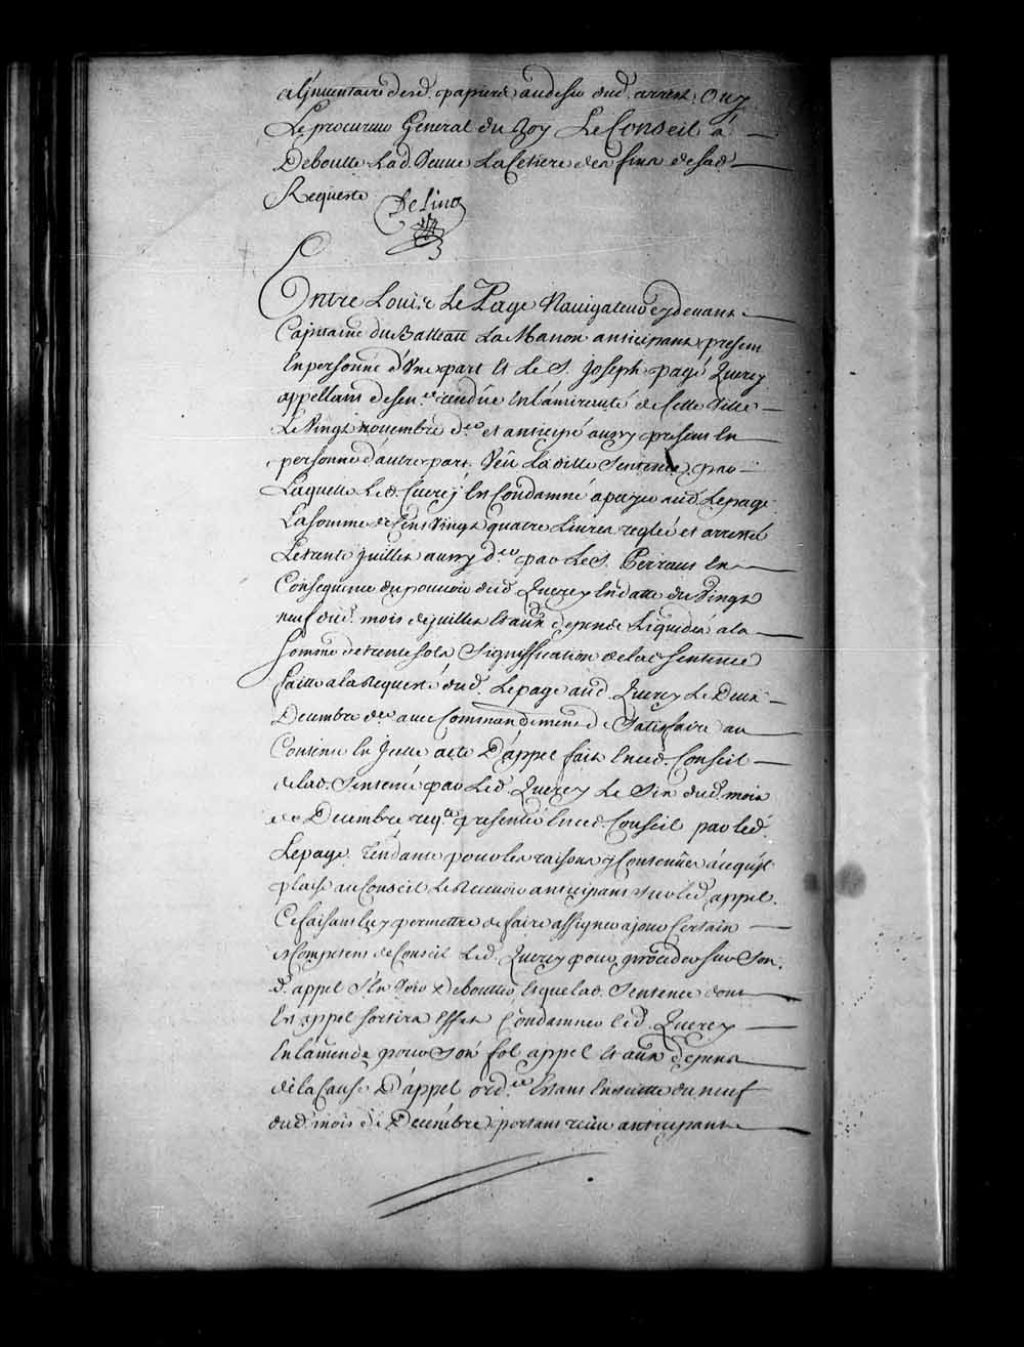 et Inventaire desd. papiers audesir dud. arrest, Ouy
Le procureur General du Roy Le Conseil a
Deboutté Lad. Veuve La Cetiere des fins de sad.
Requeste DeLino
Entre Louis Le Page Navigateur cydevant
Capitaine du Batteau La Manon anticipant present
En personne d'Une part Et Le S. Joseph pagé Quercy
appellant de sen.ce rendüe En L'amirauté de Cette Ville
Le Vingt novembre d.er et anticipé aussy present En
personne d'autre part. Veu La ditte Sentence par
Laquelle Led. Quercy Est Condamné a payer aud. Lepage
La somme de Cent Vingt quatre Livres reglée et arresté
Le trente juillet aussy d.er par Le S. Perrault En
Consequence du pouvoir dud. Quercy En datte du Vingt
neuf dud. mois de juillet Et aux depends Liquidés a la
Somme de trente sols Signiffication de lad. Sentence
faitte a la Requeste dud. Lepage aud. Quercy Le Deux
Decembre d.er avec Commandement de Satisfaire au
Contenu En Icelle, acte D'appel fait En ced. Conseil
de lad. Sentence par Led. Quercy Le Six dud. mois
de Decembre req.te presentée En ced. Conseil par led.
Lepage Tendante pour les raisons y Contenües a ce qu'il
plaise au Conseil Le Recevoir anticipant sur led. appel.
Ce faisant luy permettre de faire assigner a jour Certain
et Competent de Conseil Led. Quercy pour proceder sur Son
d. appel s'En Voir Debouter, Et que lad. Sentence dont
Est appel sortira Effet Condamner led. Quercy
En L'amende pour Son fol appel Et aux depens
de la Cause D'appel ord.ce Estant Ensuitte du neuf
dud. mois de Decembre portant reçu anticipant